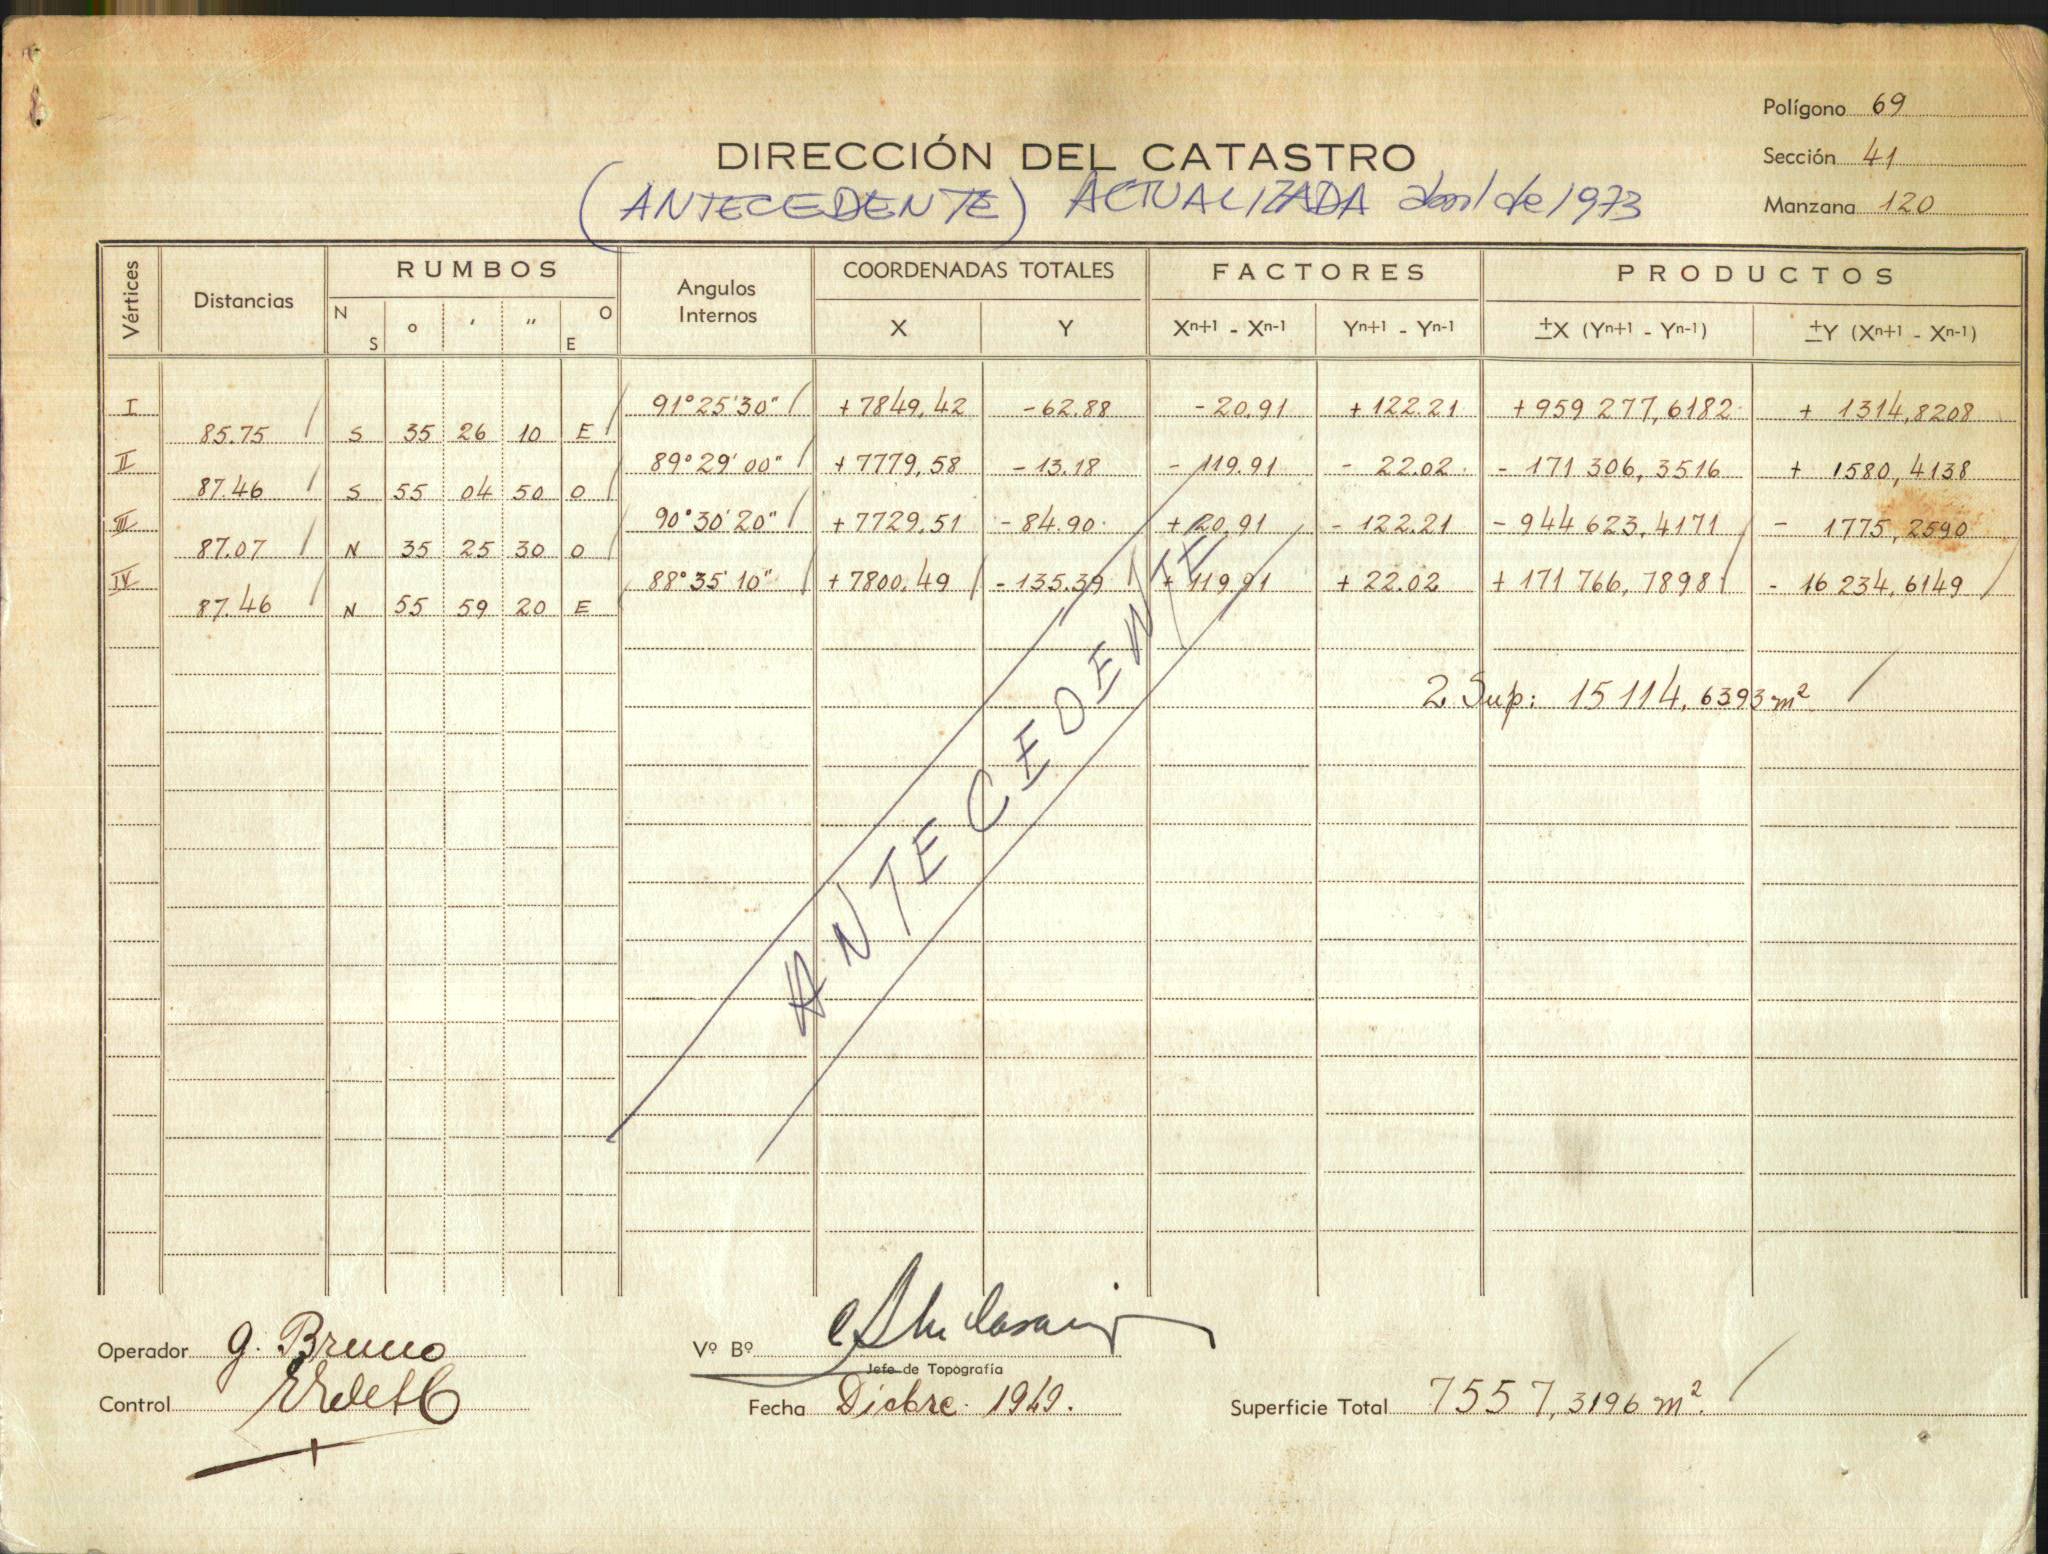 Polígono 69
DIRECCIÓN DEL CATASTRO
Sección 41
(ANTECEDENTE) ACTUALIZADA abril de 1973
Manzana 120
Vértices Distancias RUMBOS Angulos Internos COORDENADAS TOTALES FACTORES PRODUCTOS
N S o ' " O E X Y Xn+1 - Xn-1 Yn+1 - Yn-1 ±X (Yn+1 - Yn-1) ±Y (Xn+1 - Xn-1)
I 91°25'30" +7849,42 -62.88 -20,91 +122.21 +959 277,6182 + 1314,8208
85.75 S 35 26 10 E
II 89°29'00" +7779,58 -13.18 - 119.91 - 22.02 - 171 306,3516 + 1580,4138
87.46 S 55 04 50 O
III 90°30'20" +7729,51 -84.90 +20,91 - 122.21 -944 623,4171 - 1775,2590
87.07 N 35 25 30 O
IV 88°35'10" +7800,49 -135.39 + 119,91 +22.02 +171 766,7898 - 16 234,6149
87.46 N 55 59 20 E
2 Sup: 15 114,6393 m²
ANTECEDENTE
Operador G. Bruno
Vº Bº
Jefe de Topografía
Control
Fecha Dicbre. 1949.
Superficie Total 7557,3196 m².